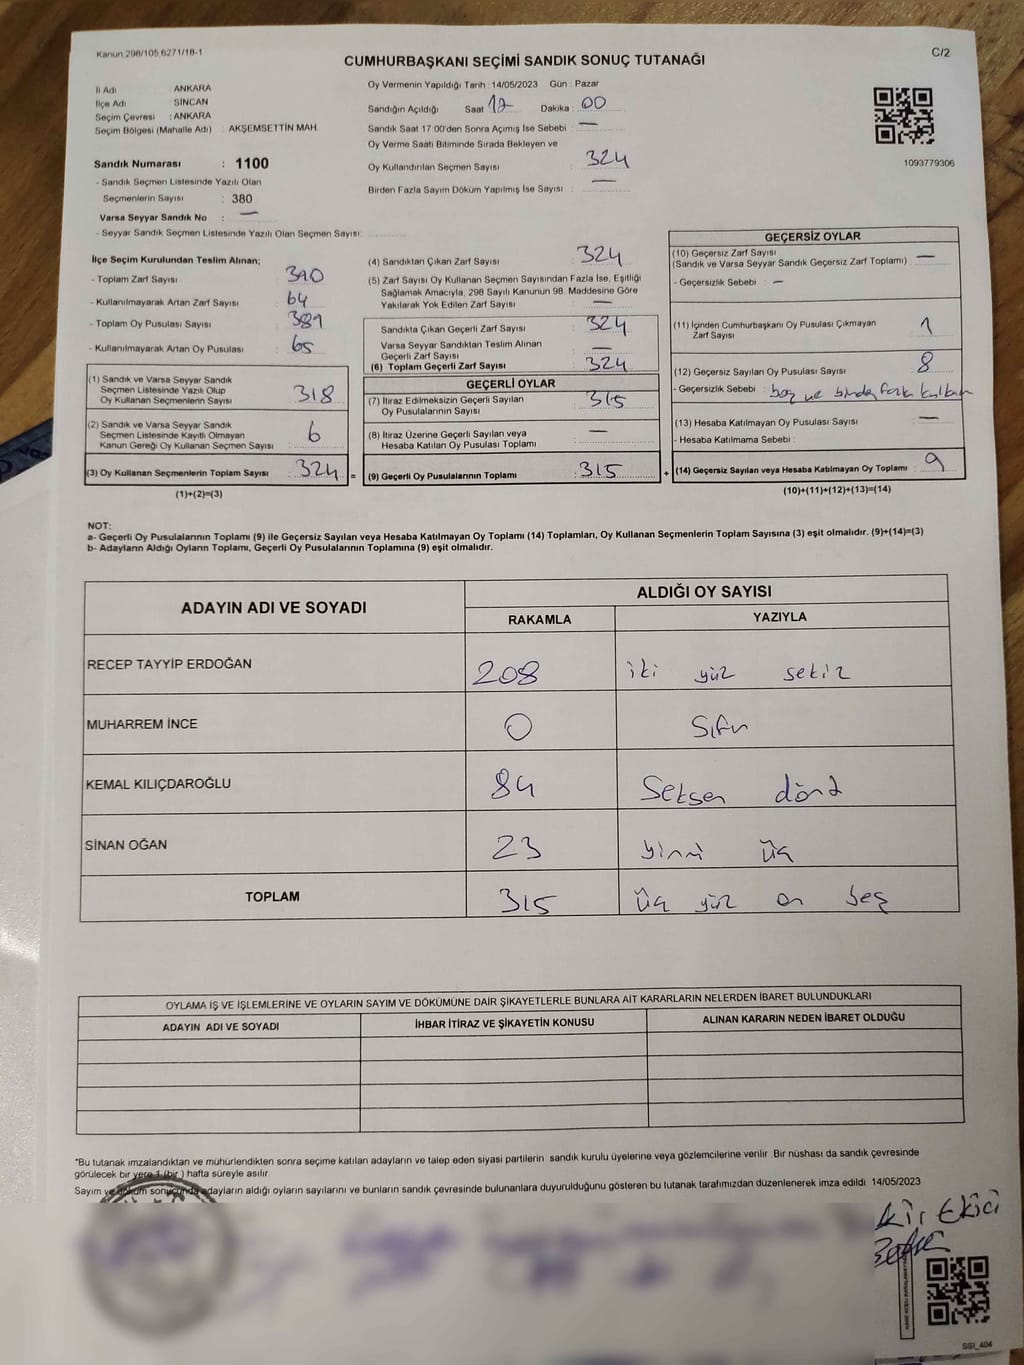 Kanun 298/105,6271/18-1
C/2
CUMHURBAŞKANI SEÇİMİ SANDIK SONUÇ TUTANAĞI
İl Adı : ANKARA
İlçe Adı : SİNCAN
Seçim Çevresi : ANKARA
Seçim Bölgesi (Mahalle Adı) : AKŞEMSETTİN MAH.
Sandık Numarası : 1100
- Sandık Seçmen Listesinde Yazılı Olan
Seçmenlerin Sayısı : 380
Varsa Seyyar Sandık No : —
- Seyyar Sandık Seçmen Listesinde Yazılı Olan Seçmen Sayısı:
Oy Vermenin Yapıldığı Tarih : 14/05/2023 Gün : Pazar
Sandığın Açıldığı Saat 17 Dakika : 00
Sandık Saat 17:00'den Sonra Açımış İse Sebebi : —
Oy Verme Saati Bitiminde Sırada Bekleyen ve
Oy Kullandırılan Seçmen Sayısı : 324
Birden Fazla Sayım Döküm Yapılmış İse Sayısı : —
1093779306
İlçe Seçim Kurulundan Teslim Alınan;
- Toplam Zarf Sayısı : 390
- Kullanılmayarak Artan Zarf Sayısı : 64
- Toplam Oy Pusulası Sayısı : 389
- Kullanılmayarak Artan Oy Pusulası : 65
(1) Sandık ve Varsa Seyyar Sandık
Seçmen Listesinde Yazılı Olup
Oy Kullanan Seçmenlerin Sayısı : 318
(2) Sandık ve Varsa Seyyar Sandık
Seçmen Listesinde Kayıtlı Olmayan
Kanun Gereği Oy Kullanan Seçmen Sayısı : 6
(3) Oy Kullanan Seçmenlerin Toplam Sayısı : 324
(1)+(2)=(3)
(4) Sandıktan Çıkan Zarf Sayısı : 324
(5) Zarf Sayısı Oy Kullanan Seçmen Sayısından Fazla İse, Eşitliği
Sağlamak Amacıyla, 298 Sayılı Kanunun 98. Maddesine Göre
Yakılarak Yok Edilen Zarf Sayısı : —
Sandıkta Çıkan Geçerli Zarf Sayısı : 324
Varsa Seyyar Sandıktan Teslim Alınan
Geçerli Zarf Sayısı : —
(6) Toplam Geçerli Zarf Sayısı : 324
GEÇERLİ OYLAR
(7) İtiraz Edilmeksizin Geçerli Sayılan
Oy Pusulalarının Sayısı : 315
(8) İtiraz Üzerine Geçerli Sayılan veya
Hesaba Katılan Oy Pusulası Toplamı : —
= (9) Geçerli Oy Pusulalarının Toplamı : 315
GEÇERSİZ OYLAR
(10) Geçersiz Zarf Sayısı
(Sandık ve Varsa Seyyar Sandık Geçersiz Zarf Toplamı) : —
- Geçersizlik Sebebi : —
(11) İçinden Cumhurbaşkanı Oy Pusulası Çıkmayan
Zarf Sayısı : 1
(12) Geçersiz Sayılan Oy Pusulası Sayısı : 8
- Geçersizlik Sebebi : boş ve birden fazla
(13) Hesaba Katılmayan Oy Pusulası Sayısı : —
- Hesaba Katılmama Sebebi :
+ (14) Geçersiz Sayılan veya Hesaba Katılmayan Oy Toplamı : 9
(10)+(11)+(12)+(13)=(14)
NOT:
a- Geçerli Oy Pusulalarının Toplamı (9) ile Geçersiz Sayılan veya Hesaba Katılmayan Oy Toplamı (14) Toplamları, Oy Kullanan Seçmenlerin Toplam Sayısına (3) eşit olmalıdır. (9)+(14)=(3)
b- Adayların Aldığı Oyların Toplamı, Geçerli Oy Pusulalarının Toplamına (9) eşit olmalıdır.
ADAYIN ADI VE SOYADI
ALDIĞI OY SAYISI
RAKAMLA YAZIYLA
RECEP TAYYİP ERDOĞAN 208 iki yüz sekiz
MUHARREM İNCE 0 Sıfır
KEMAL KILIÇDAROĞLU 84 Seksen dört
SİNAN OĞAN 23 yirmi üç
TOPLAM 315 üç yüz on beş
OYLAMA İŞ VE İŞLEMLERİNE VE OYLARIN SAYIM VE DÖKÜMÜNE DAİR ŞİKAYETLERLE BUNLARA AİT KARARLARIN NELERDEN İBARET BULUNDUKLARI
ADAYIN ADI VE SOYADI İHBAR İTİRAZ VE ŞİKAYETİN KONUSU ALINAN KARARIN NEDEN İBARET OLDUĞU
*Bu tutanak imzalandıktan ve mühürlendikten sonra seçime katılan adayların ve talep eden siyasi partilerin sandık kurulu üyelerine veya gözlemcilerine verilir. Bir nüshası da sandık çevresinde
görülecek bir yere 1 (bir ) hafta süreyle asılır.
Sayım ve döküm sonucunda adayların aldığı oyların sayılarını ve bunların sandık çevresinde bulunanlara duyurulduğunu gösteren bu tutanak tarafımızdan düzenlenerek imza edildi 14/05/2023
Ekici
SSI_404